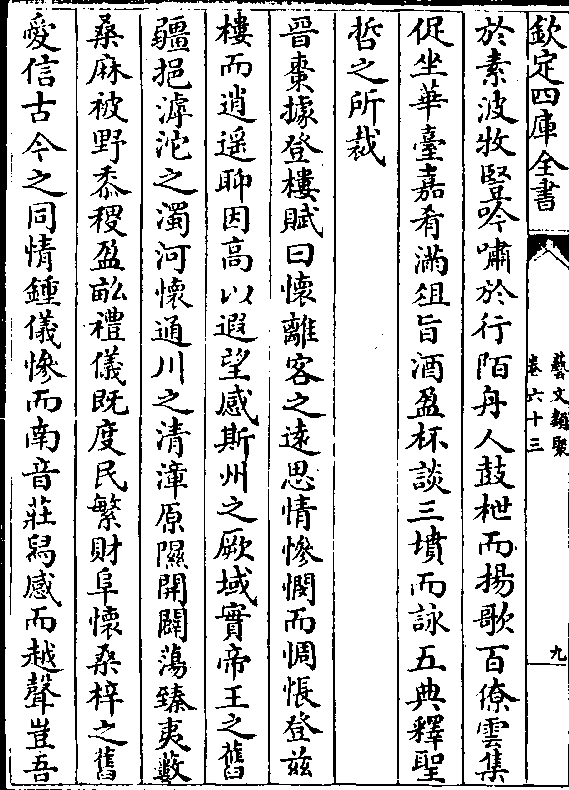 欽定四庫全書
藝文類聚
卷六十三
九
於素波牧豎吟嘯於行陌舟人鼓枻而揚歌百僚雲集
促坐華臺嘉肴滿俎旨酒盈杯談三墳而詠五典釋聖
哲之所裁
晉棗據登樓賦曰懷離客之遠思情慘憫而惆悵登兹
樓而逍遥聊因高以遐望感斯州之厥域實帝王之舊
疆挹滹沱之濁河懷通川之清漳原隰開闢蕩臻夷藪
桑麻被野黍稷盈畝禮儀既度民繁財阜懷桑梓之舊
愛信古今之同情鍾儀慘而南音莊舄感而越聲豈吾